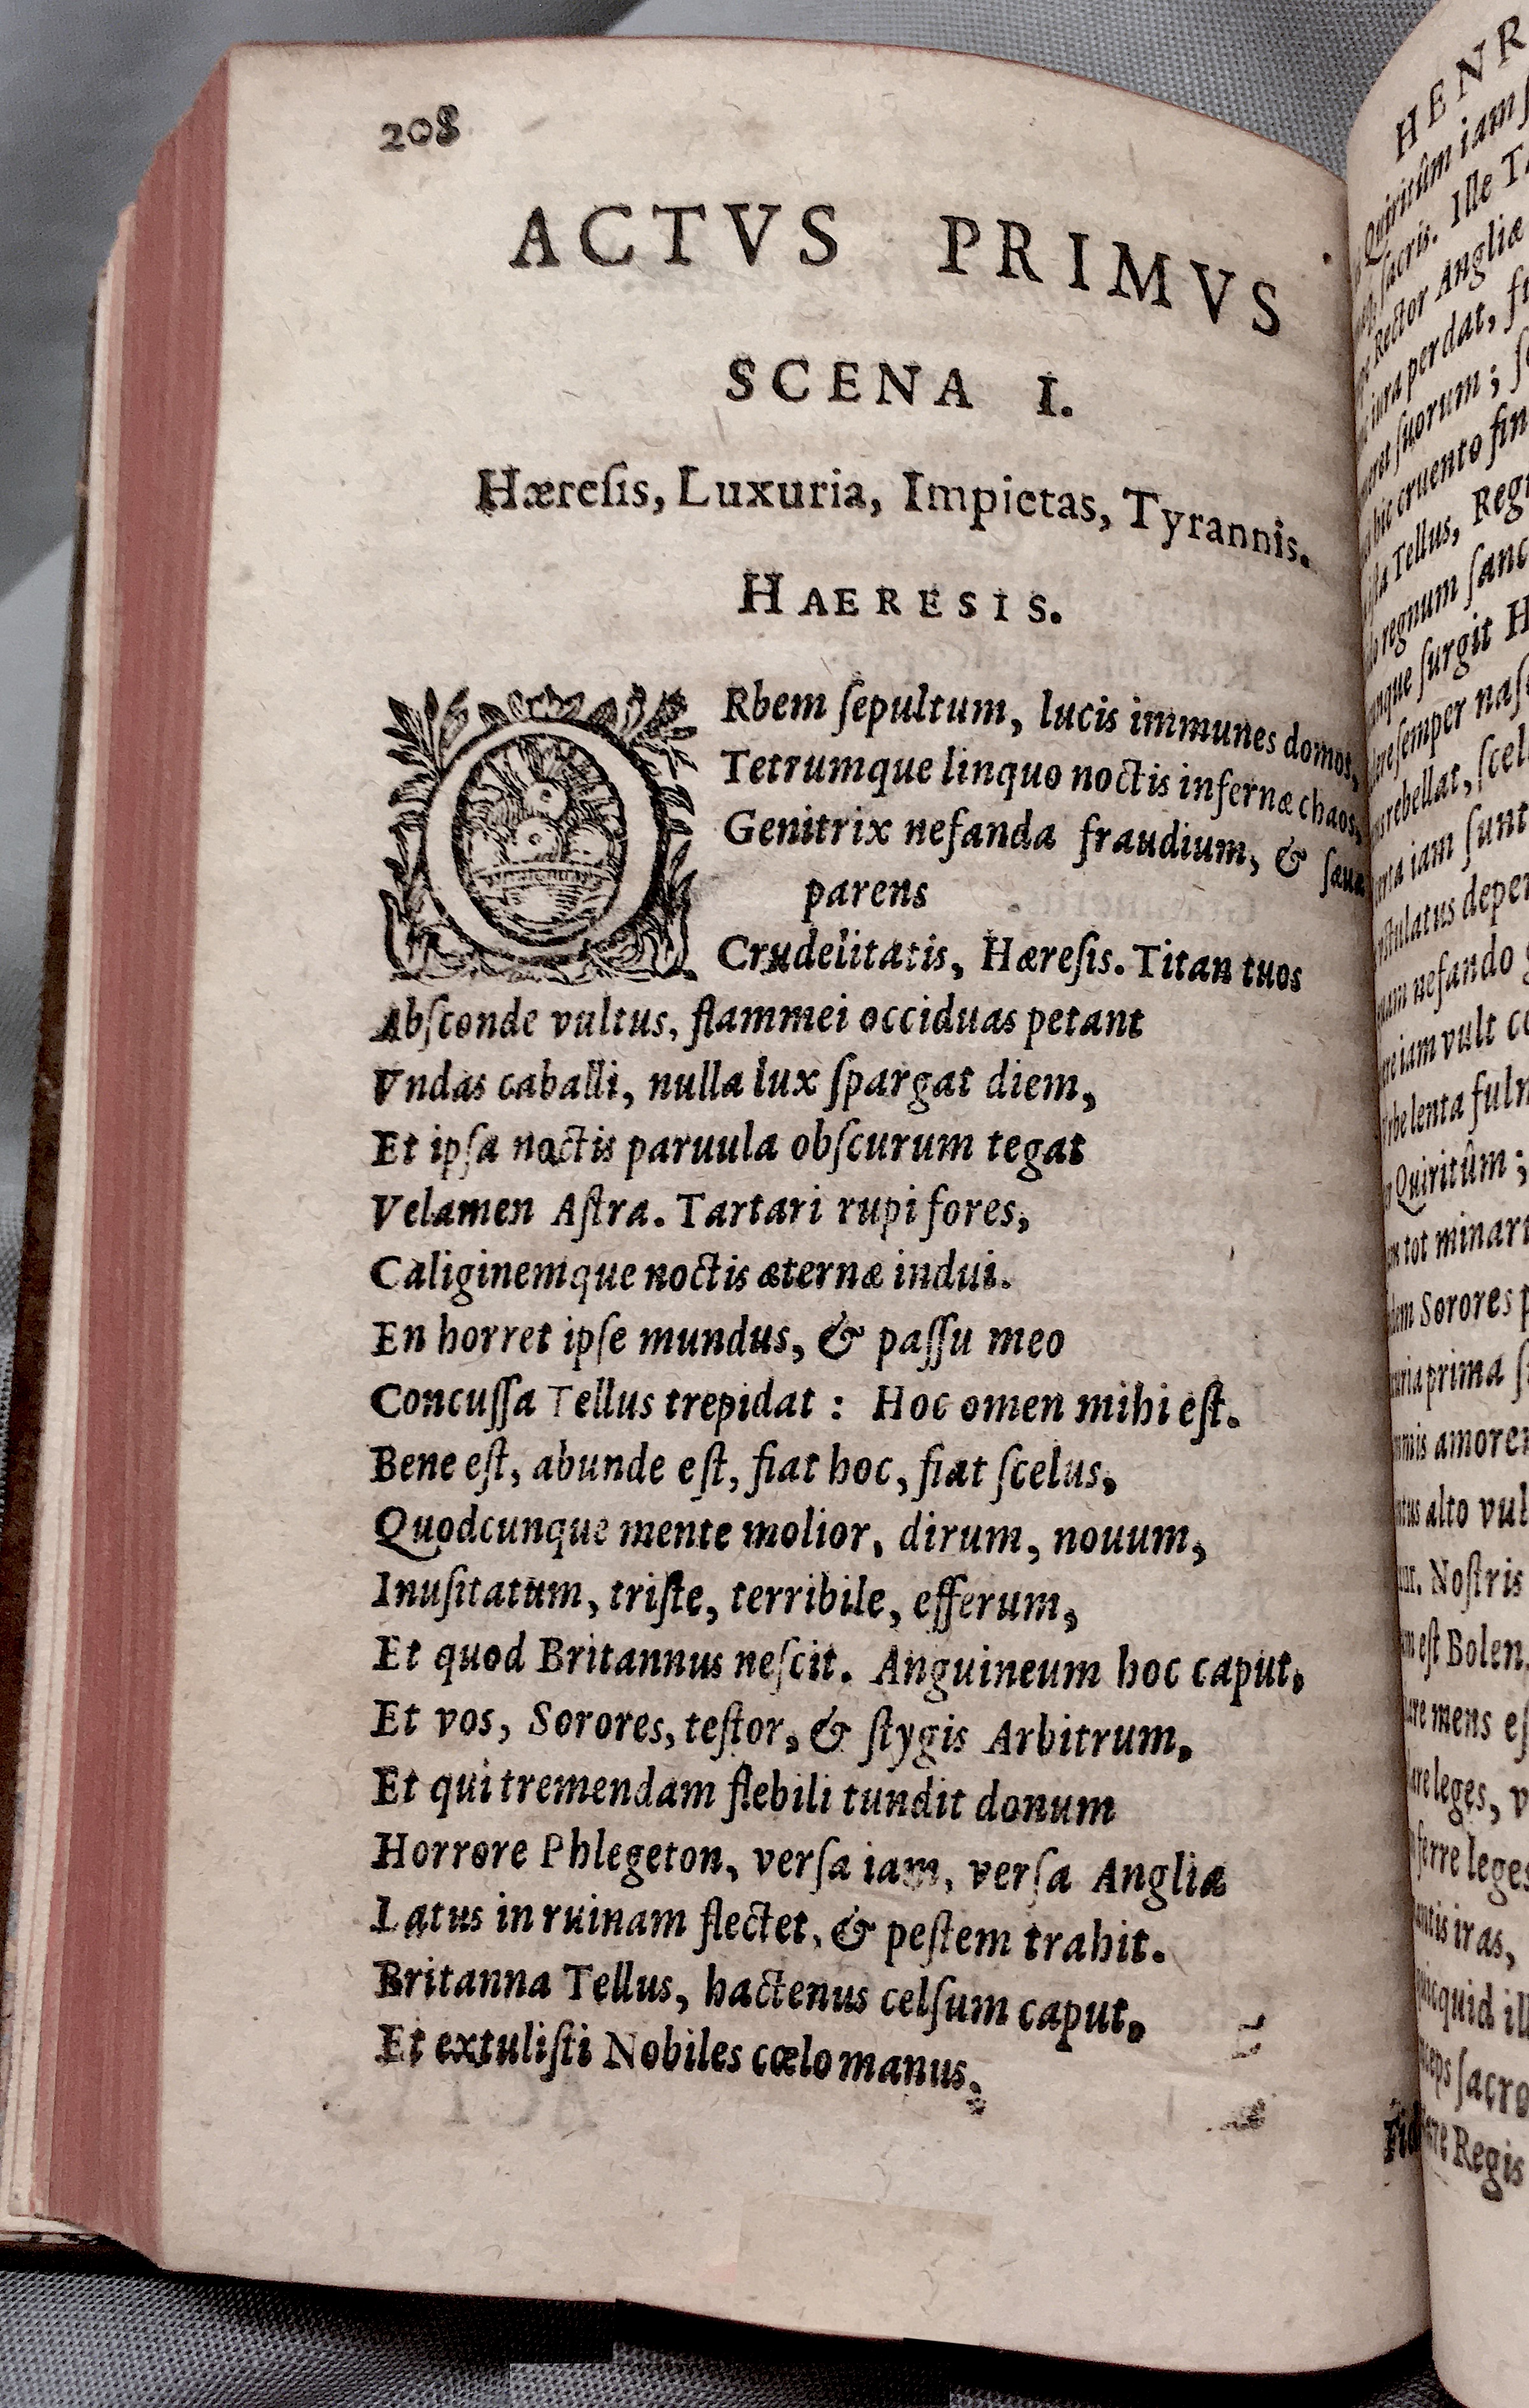 208
ACTVS PRIMVS
SCENA I.
Hæreſis, Luxuria, Impietas, Tyrannis.
HAERESIS.
ORbem ſepultum, lucis immunes domos,
Tetrumque linquo noctis infernæ chaos,
Genitrix nefanda fraudium, & ſæua
parens
Crudelitatis, Hæreſis. Titan tuos
Abſconde vultus, flammei occiduas petant
Vndas caballi, nulla lux ſpargat diem,
Et ipſa noctis paruula obſcurum tegat
Velamen Aſtra. Tartari rupi fores,
Caliginemque noctis æternæ indui.
En horret ipſe mundus, & paſſu meo
Concuſſa Tellus trepidat : Hoc omen mihi eſt.
Bene eſt, abunde eſt, fiat hoc, fiat ſcelus,
Quodcunque mente molior, dirum, nouum,
Inuſitatum, triſte, terribile, efferum,
Et quod Britannus neſcit. Anguineum hoc caput,
Et vos, Sorores, teſtor, & ſtygis Arbitrum,
Et qui tremendam flebili tundit donum
Horrore Phlegeton, verſa iam, verſa Angliæ
Latus in ruinam flectet, & peſtem trahit.
Britanna Tellus, hactenus celſum caput,
Et extuliſti Nobiles cœlo manus,
HENR
Quiritûm iam
ſacris. Ille
Rector Angliæ
iura perdat,
ſuorum ;
cruento
Tellus,
regnum
ſurgit
ſemper
rebellat,
iam ſunt
nefando
iam vult
lenta
Quiritûm ;
tot
Sorores
prima
alto
Noſtris
eſt
mens
leges,
leges
iras,
ſacro
Regis